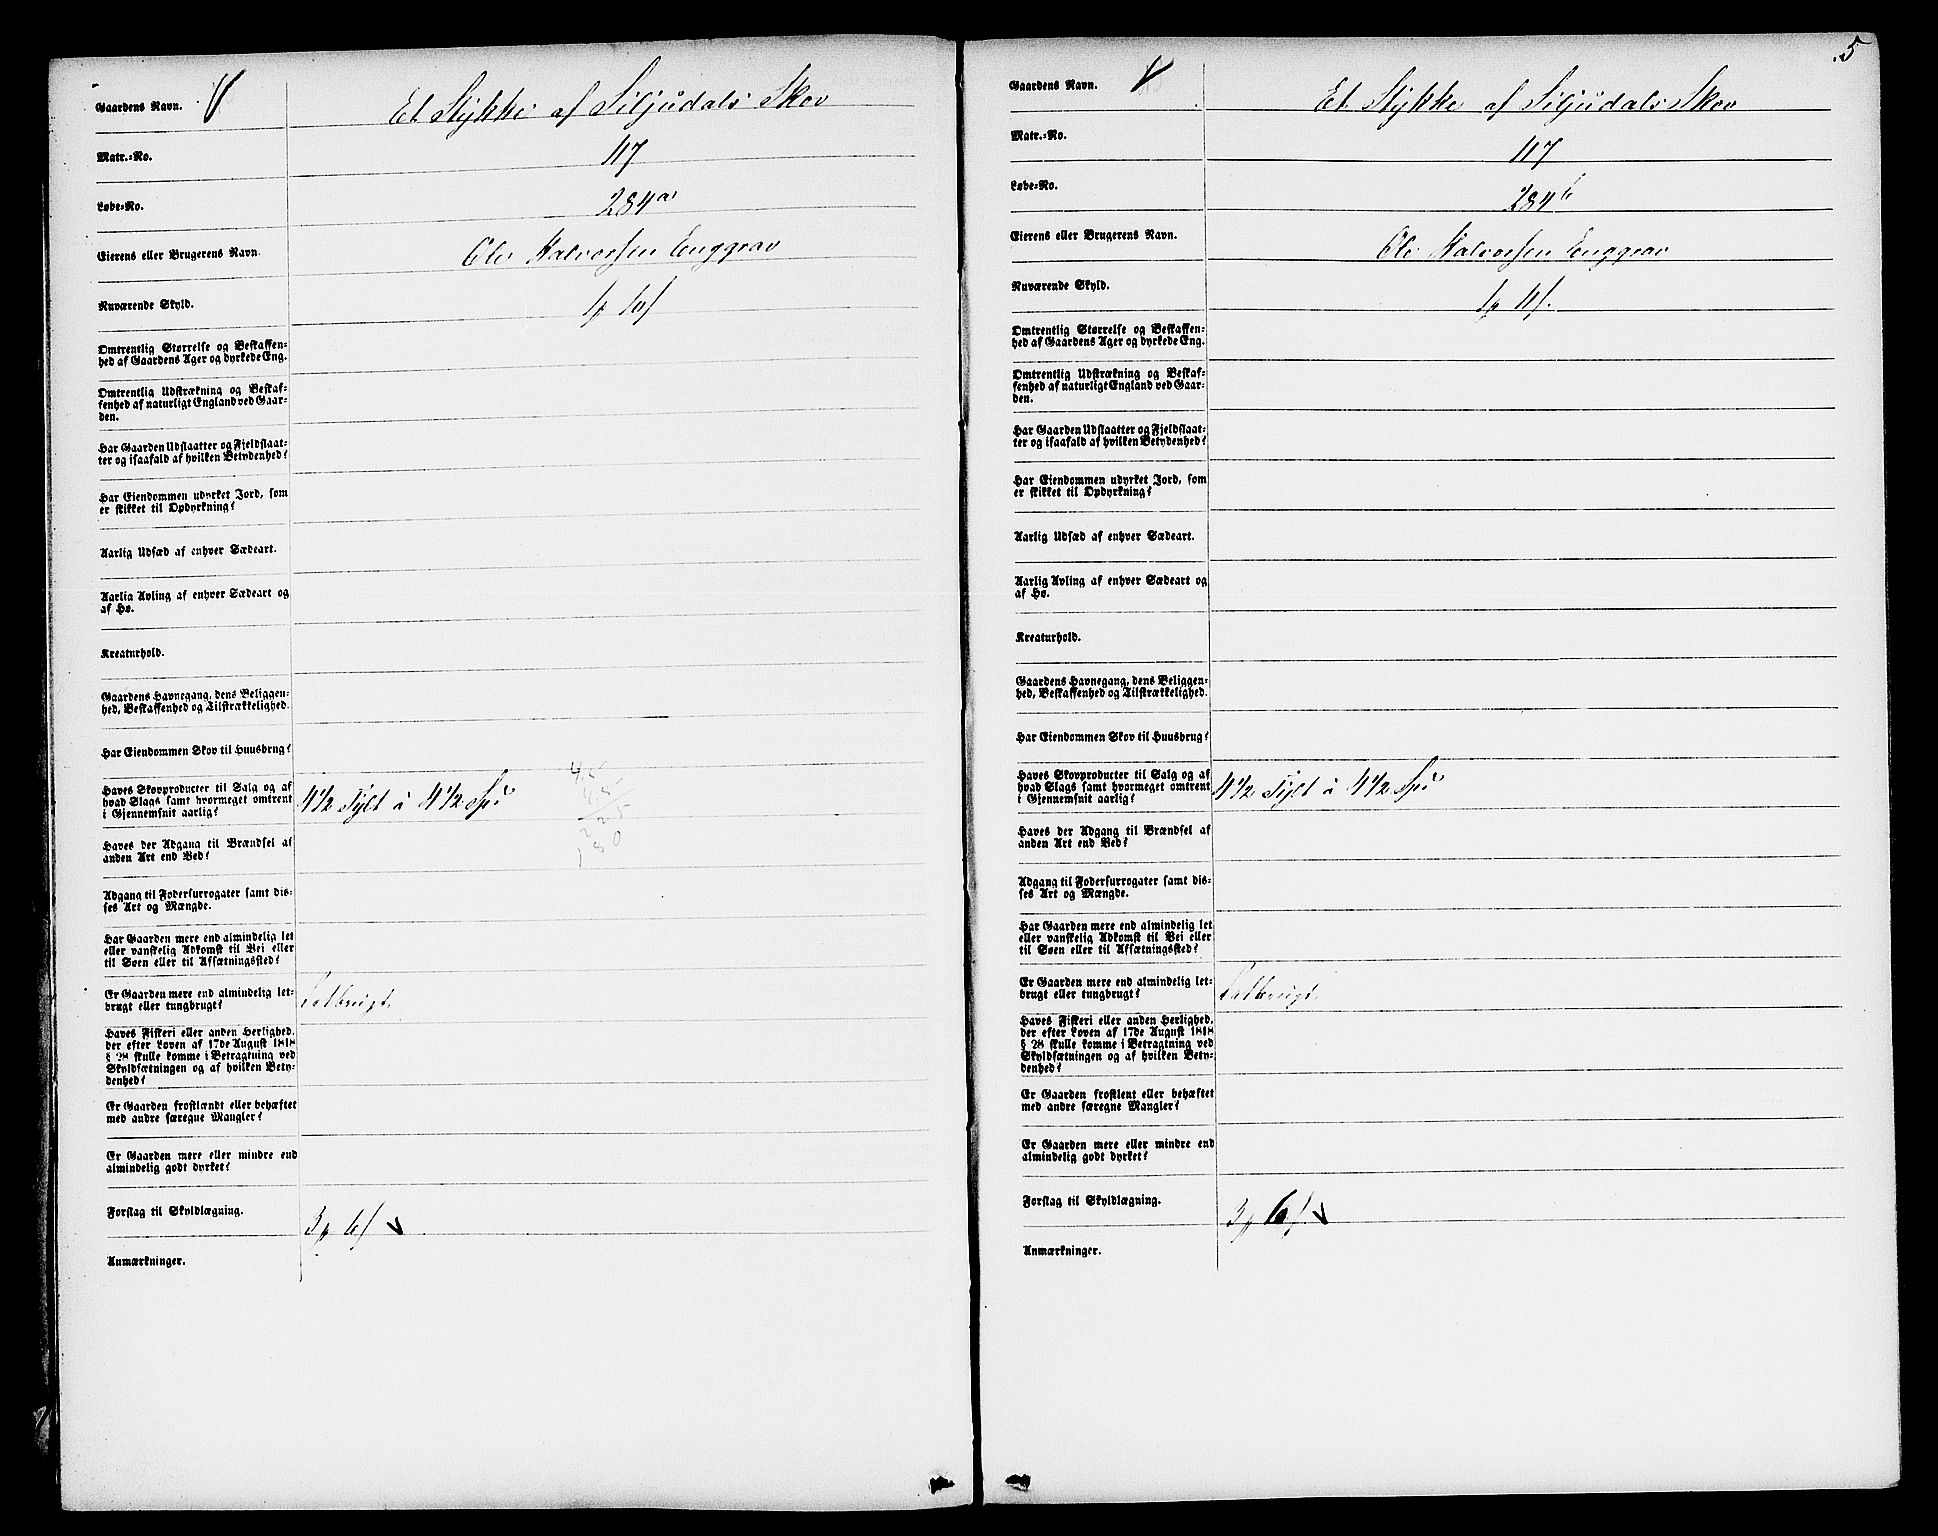 Gaardens Navn. Et Stykke af Siljudals Skov
Matr.=No. 117
Løbe=No. 284 a
Eierens eller Brugerens Navn. Ole Halvorsen Enggrav
Nuværende Skyld.
Omtrentlig Størrelse og Beskaffen=
hed af Gaardens Ager og dyrkede Eng.
Omtrentlig Udstrækning og Beskaf=
fenhed af naturligt England ved Gaar=
den.
Har Gaarden Udslaatter og Fjeldslaat=
ter og isaafald af hvilken Betydenhed?
Har Eiendommen udyrket Jord, som
er skikket til Opdyrkning?
Aarlig Udsæd af enhver Sædeart.
Aarlig Avling af enhver Sædeart og
af Hø.
Kreaturhold.
Gaardens Havnegang, dens Beliggen=
hed, Beskaffenhed og Tilstrækkelighed.
Har Eiendommen Skov til Huusbrug?
Haves Skovproducter til Salg og af
hvad Slags samt hvormeget omtrent
i Gjennemsnit aarlig? 4 1/2 Tylt à 4 1/2 Spd
Haves der Adgang til Brændsel af
anden Art end Ved?
Adgang til Fodersurrogater samt dis=
ses Art og Mængde.
Har Gaarden mere end almindelig let
eller vanskelig Adkomst til Vei eller
til Søen eller til Afsætningssted?
Er Gaarden mere end almindelig let=
brugt eller tungbrugt? Letbrugt.
Haves Fiskeri eller anden Herlighed,
der efter Loven af 17de August 1818
§ 28 skulle komme i Betragtning ved
Skyldsætningen og af hvilken Bety=
denhed?
Er Gaarden frostlændt eller behæftet
med andre særegne Mangler?
Er Gaarden mere eller mindre end
almindelig godt dyrket?
Forslag til Skyldlægning. 3 6
Anmærkninger.
5
Gaardens Navn. Et Stykke af Siljudals Skov
Matr.=No. 117
Løbe=No. 284 b
Eierens eller Brugerens Navn. Ole Halvorsen Enggrav
Nuværende Skyld.
Omtrentlig Størrelse og Beskaffen=
hed af Gaardens Ager og dyrkede Eng.
Omtrentlig Udstrækning og Beskaf=
fenhed af naturligt England ved Gaar=
den.
Har Gaarden Udslaatter og Fjeldslaat=
ter og isaafald af hvilken Betydenhed?
Har Eiendommen udyrket Jord, som
er skikket til Opdyrkning?
Aarlig Udsæd af enhver Sædeart.
Aarlig Avling af enhver Sædeart og
af Hø.
Kreaturhold.
Gaardens Havnegang, dens Beliggen=
hed, Beskaffenhed og Tilstrækkelighed.
Har Eiendommen Skov til Huusbrug?
Haves Skovproducter til Salg og af
hvad Slags samt hvormeget omtrent
i Gjennemsnit aarlig? 4 1/2 Tylt à 4 1/2 Spd
Haves der Adgang til Brændsel af
anden Art end Ved?
Adgang til Fodersurrogater samt dis=
ses Art og Mængde.
Har Gaarden mere end almindelig let
eller vanskelig Adkomst til Vei eller
til Søen eller til Afsætningssted?
Er Gaarden mere end almindelig let=
brugt eller tungbrugt? Letbrugt.
Haves Fiskeri eller anden Herlighed,
der efter Loven af 17de August 1818
§ 28 skulle komme i Betragtning ved
Skyldsætningen og af hvilken Bety=
denhed?
Er Gaarden frostlent eller behæftet
med andre særegne Mangler?
Er Gaarden mere eller mindre end
almindelig godt dyrket?
Forslag til Skyldlægning. 3 6
Anmærkninger.